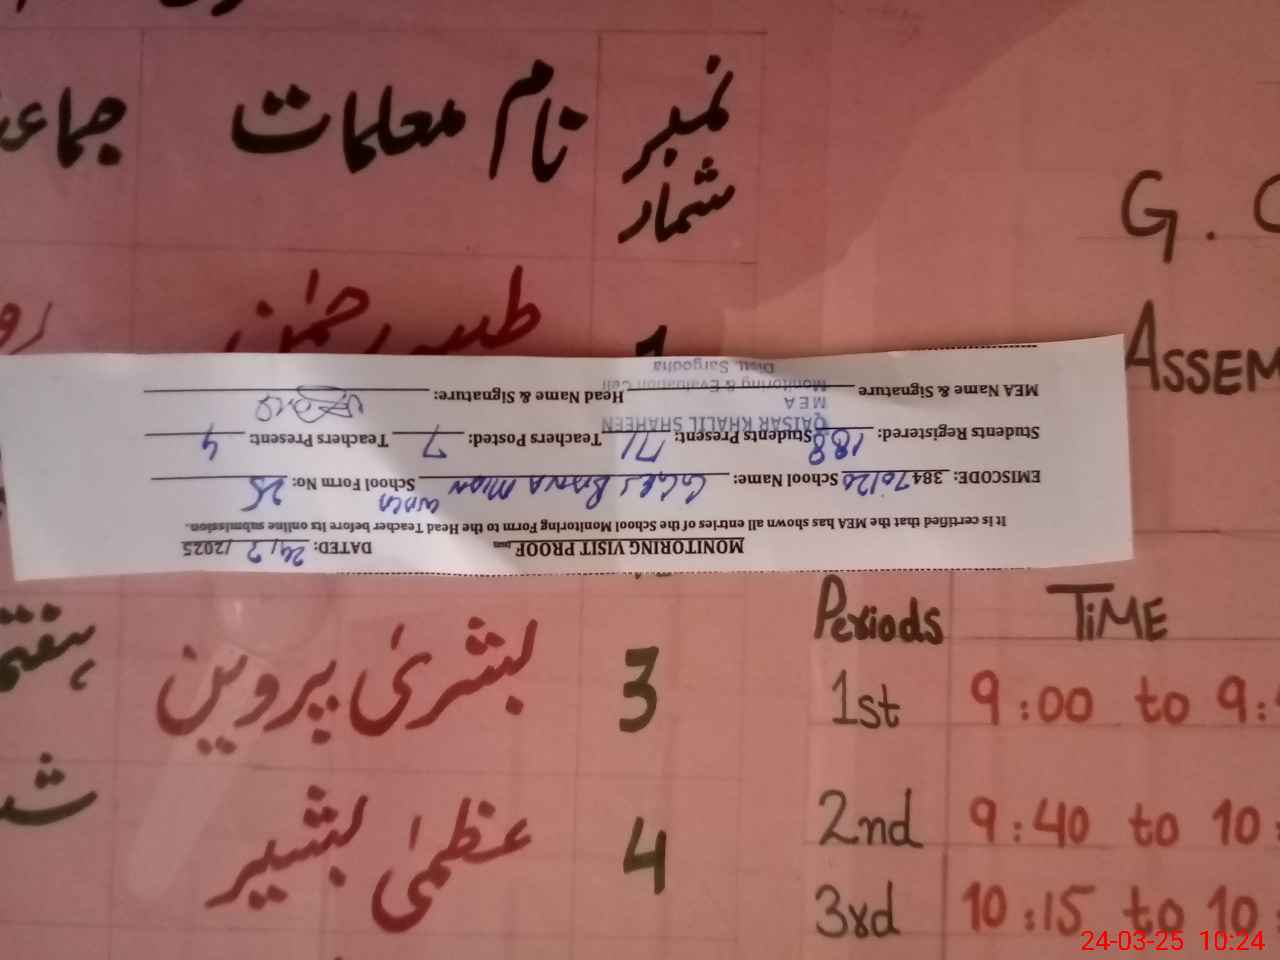 نمبر شمار
نام معلمات
1
3
بشریٰ پروین
4
عظمیٰ بشیر
G.
ASSEM
Periods TIME
1st 9:00 to 9:
2nd 9:40 to 10
3rd 10:15 to 10:
MONITORING VISIT PROOF DATED: 24/3/2025
It is certified that the MEA has shown all entries of the School Monitoring Form to the Head Teacher before its online submission.
EMISCODE: 38470120 School Name: School Form No: 25
Students Registered: 188 Students Present: 171 Teachers Posted: 7 Teachers Present: 4
QAISAR KHALIL SHAHEEN
MEA
MEA Name & Signature Head Name & Signature:
Monitoring & Evaluation Cell
Distt. Sargodha
24-03-25 10:24